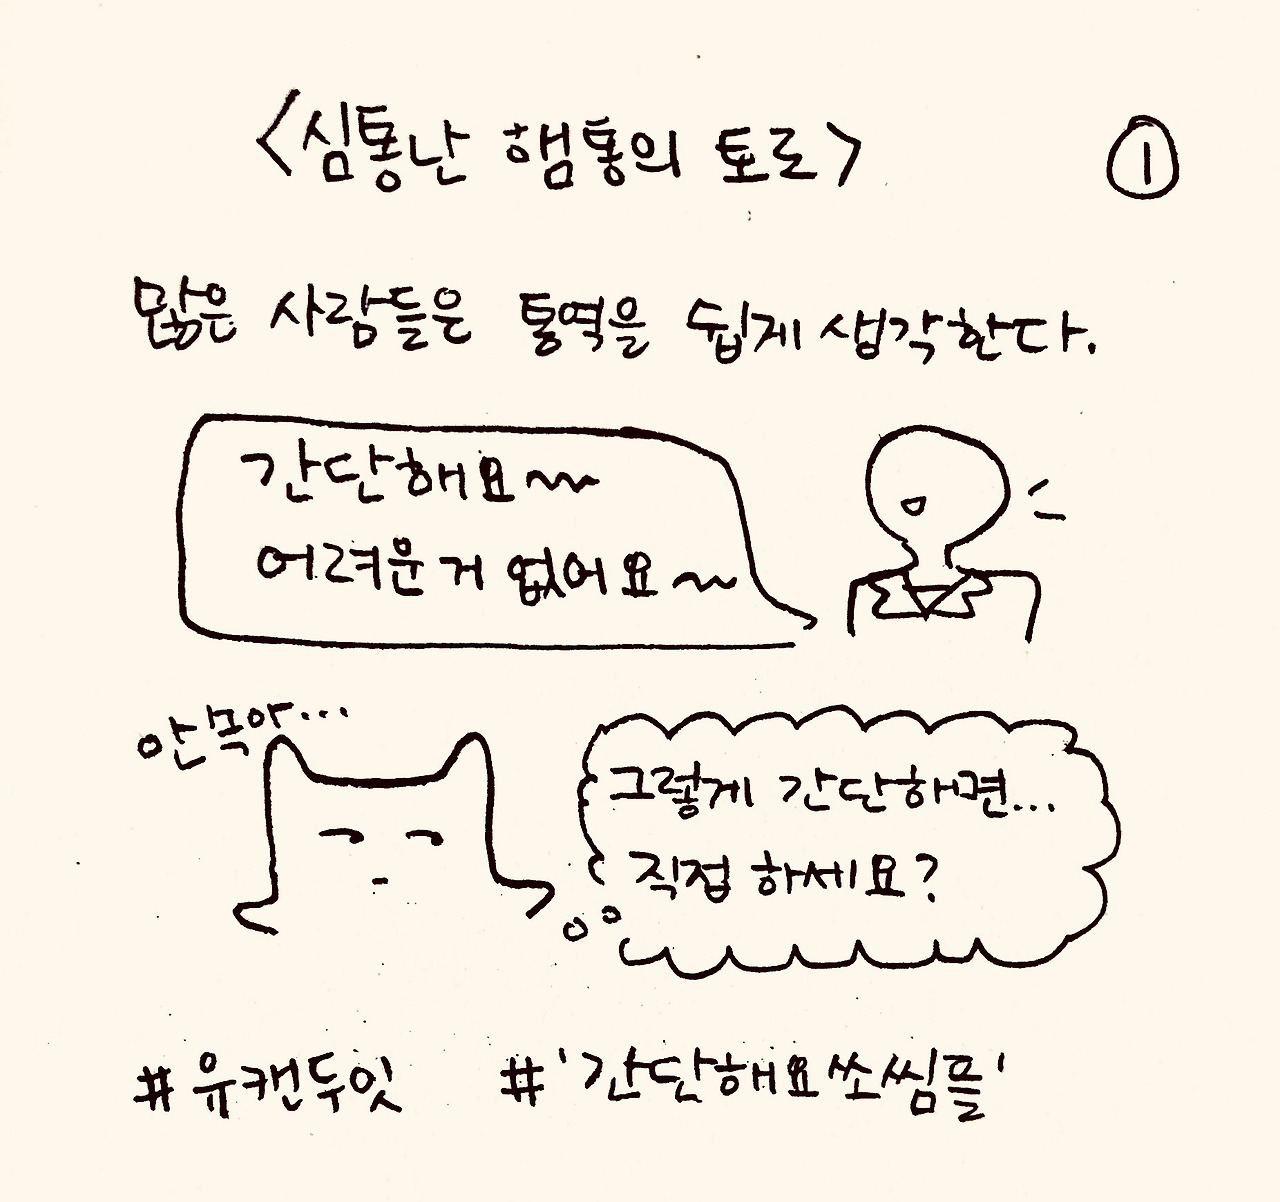 <심통난 햄통의 토로>
①
많은 사람들은 통역을 쉽게 생각한다.
간단해요~~
어려운거 없어요~~
안녹아...
그렇게 간단하면...
직접 하세요?
#유캔두잇 #'간단해요쏘씸플'